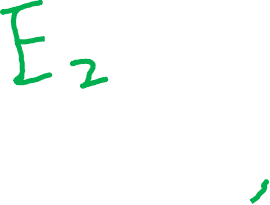 E₂
,